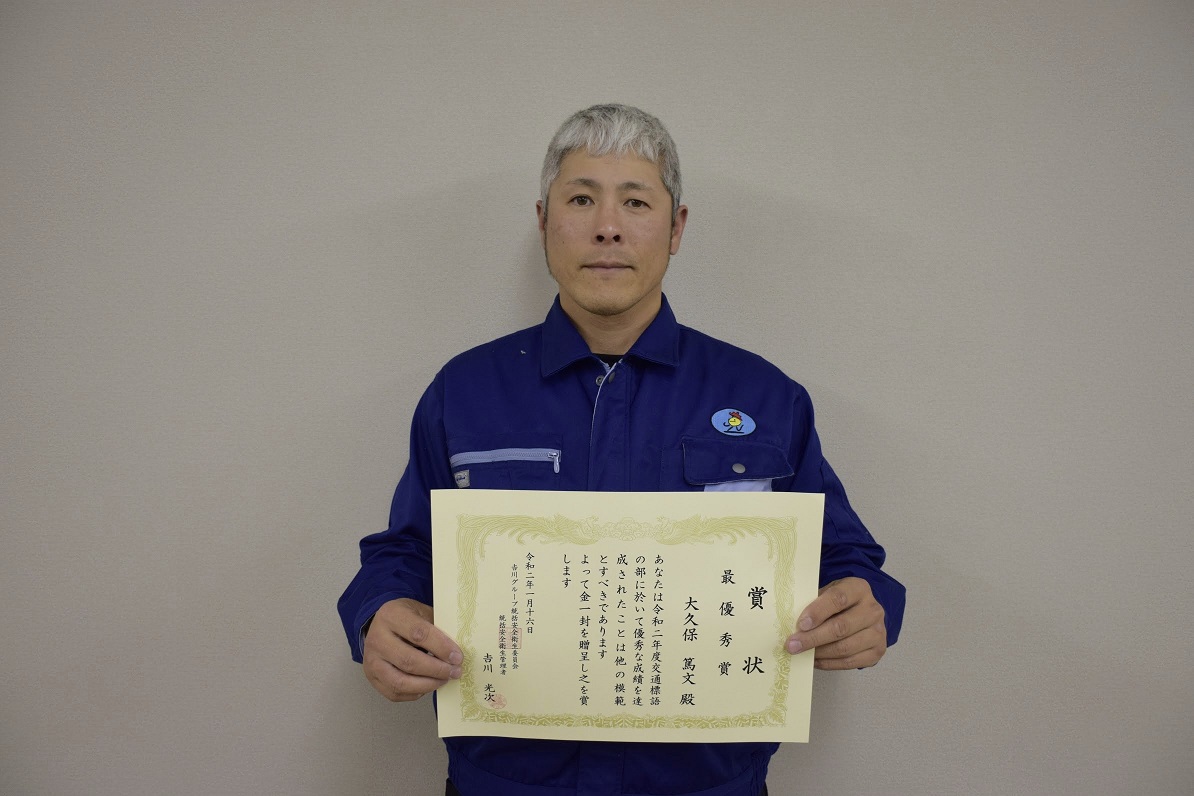 賞状
最優秀賞
大久保 篤文 殿
あなたは令和二年度交通標語
の部に於いて優秀な成績を達
成されたことは他の模範
とすべきであります
よって金一封を贈呈し之を賞
します
令和二年一月十六日
吉川グループ統括安全衛生委員会
統括安全衛生管理者
吉川 光次